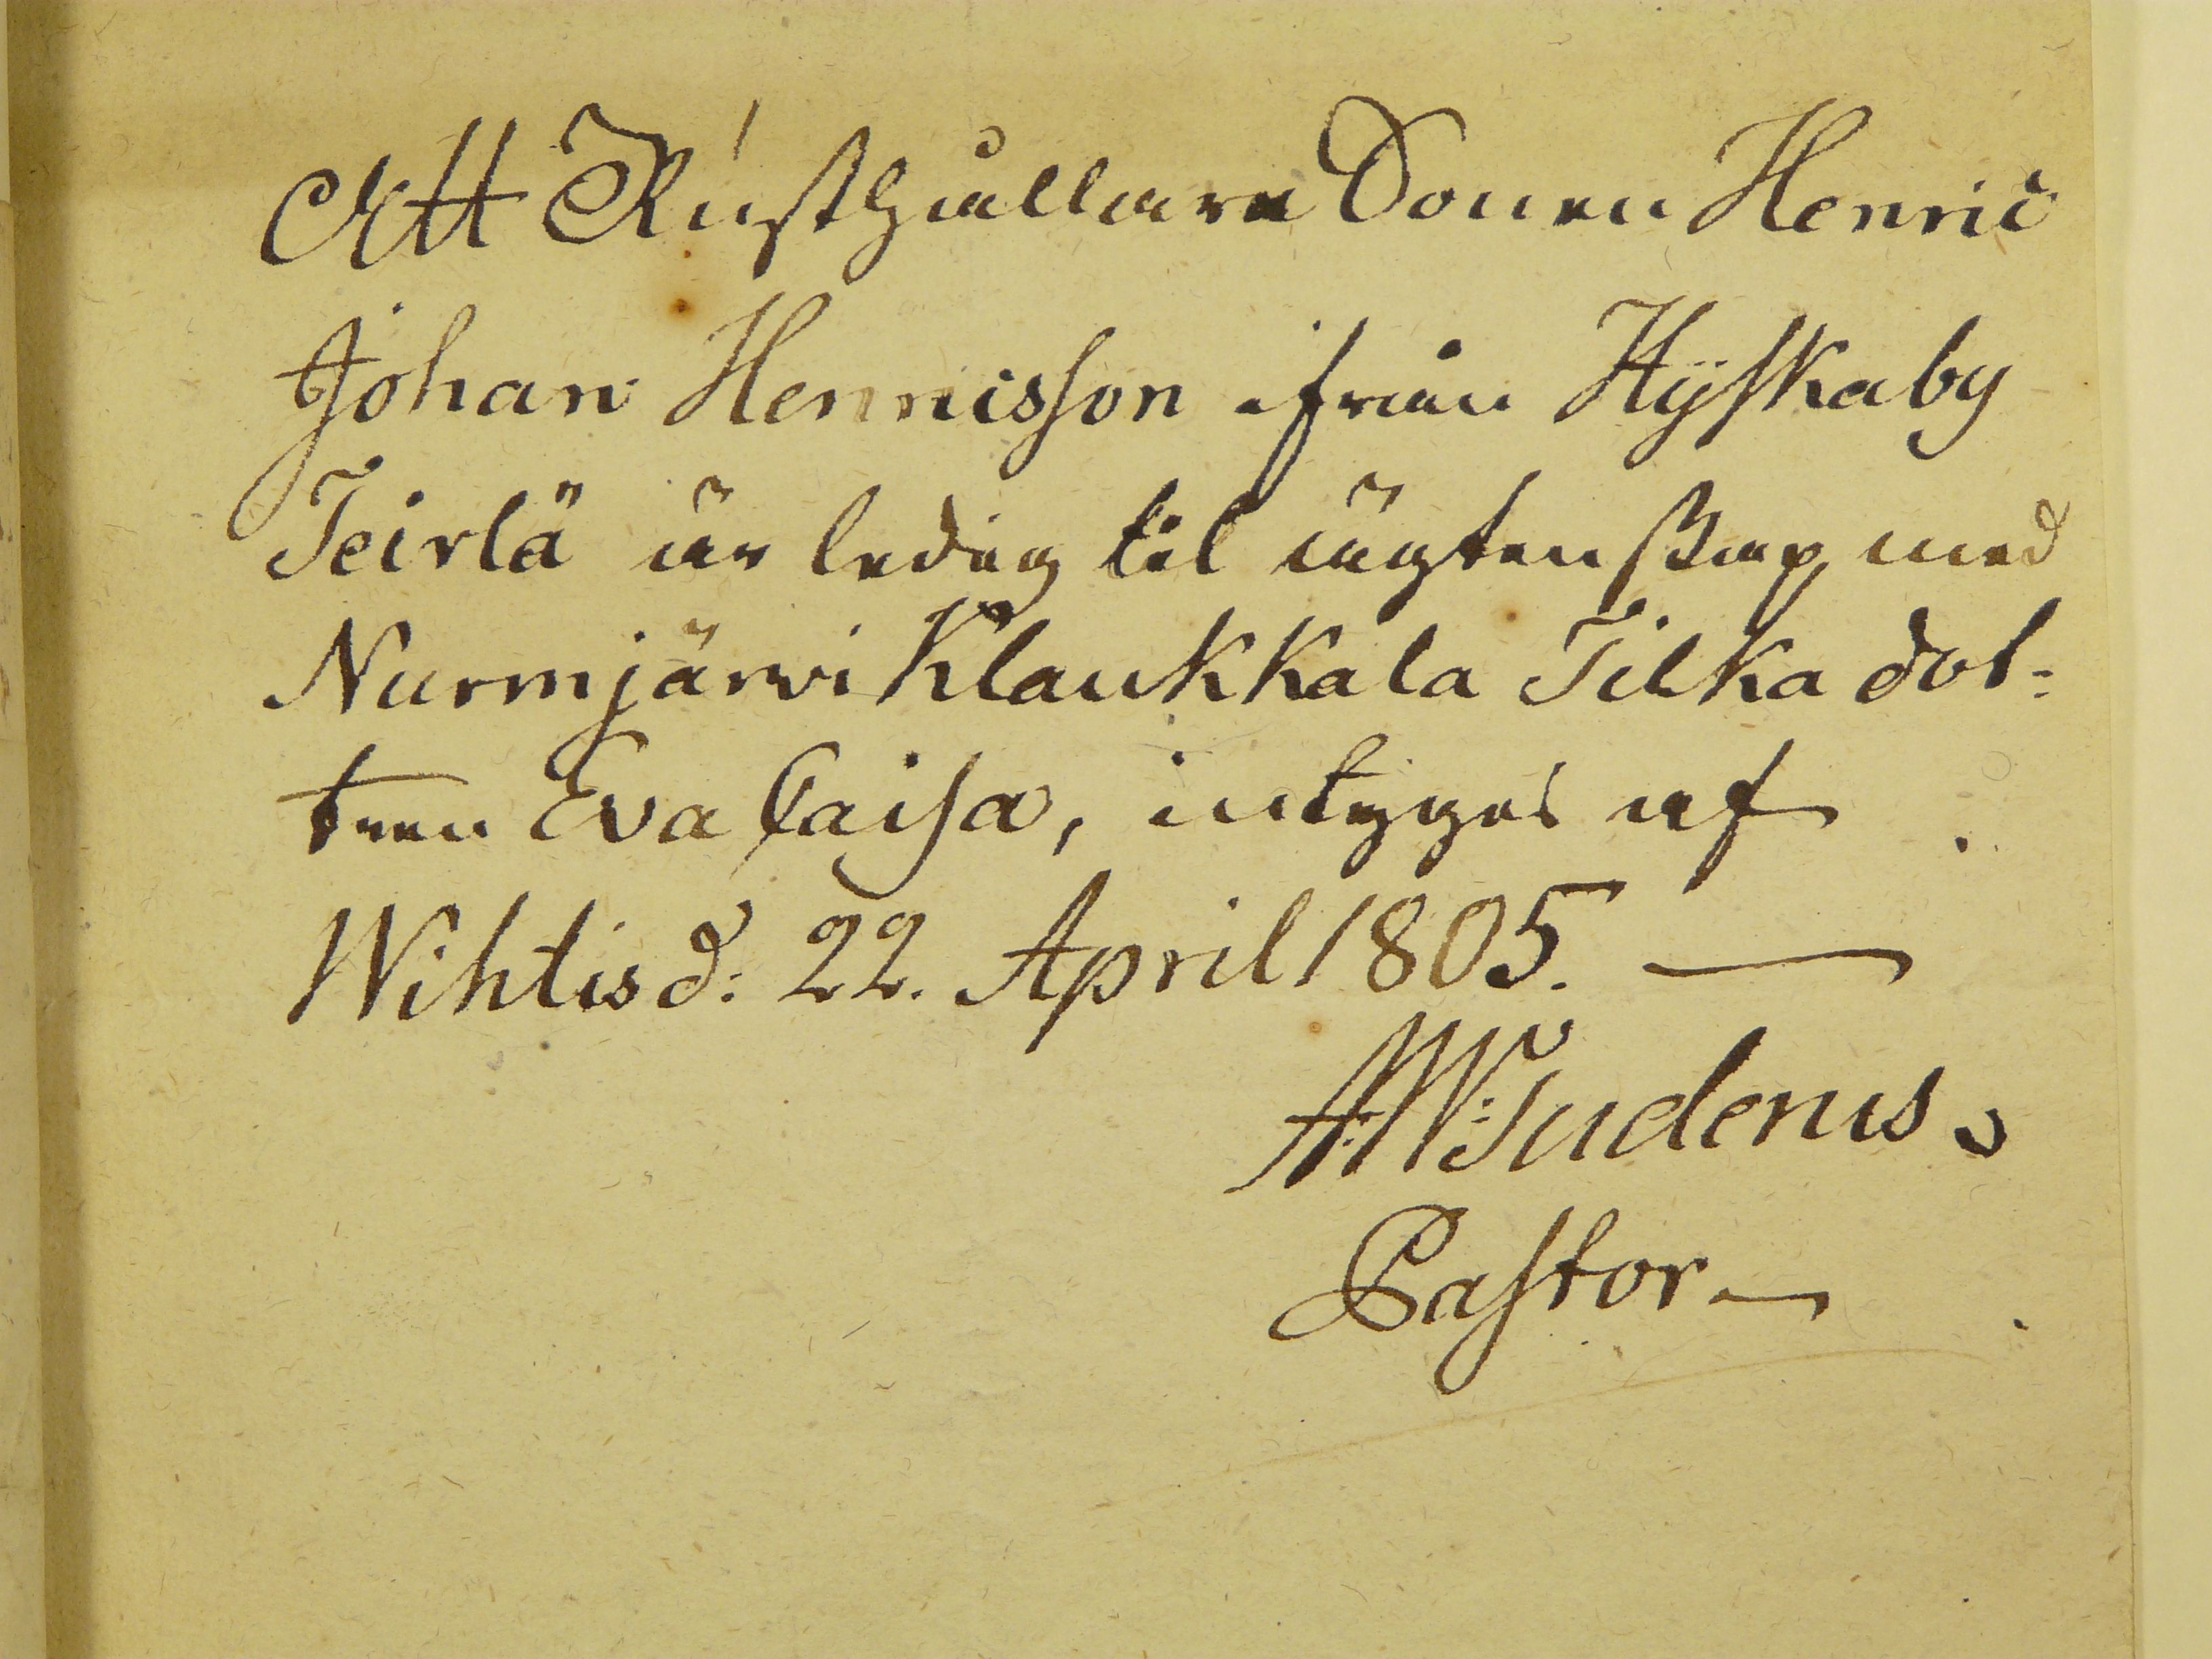 Att Rusthållare Sonen Henric
Johan Hennisson ifrån Hÿskaby
Teirlä är ledig til ägtenskap med
Nurmjärvi Klaukkala Tilka dot-
tren Eva Caisa, intygas af
Wihtis d: 22. April 1805. —
AWSudenius
Pastor